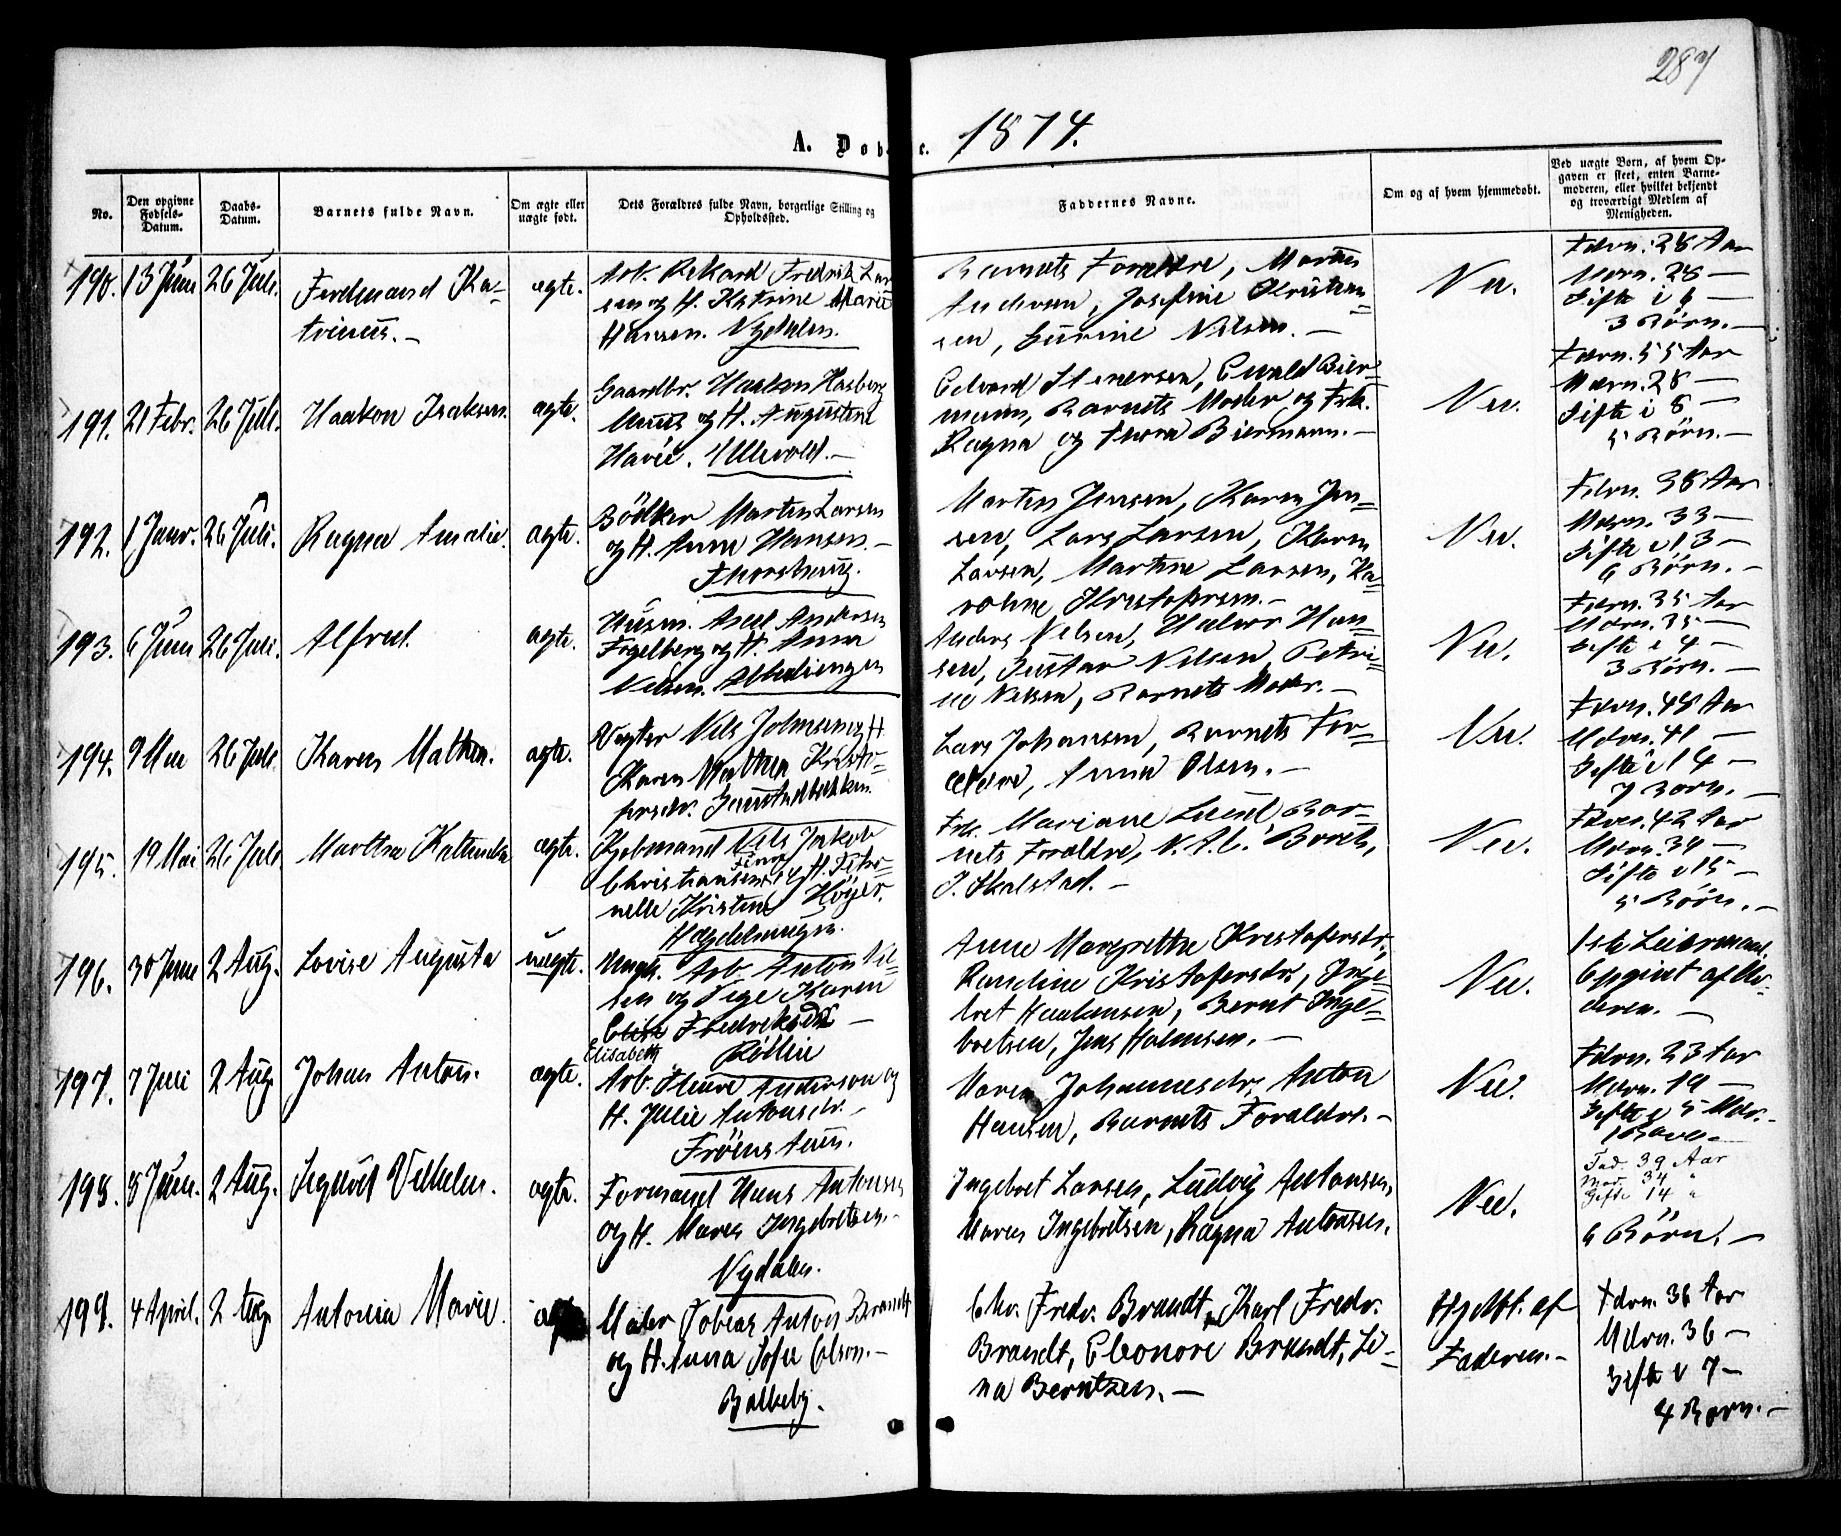 287
A. Døbte. 1874.
No.
Den opgivne Fødsels-Datum.
Daabs-Datum.
Barnets fulde Navn.
Om ægte eller uægte født.
Dets Forældres fulde Navn, borgerlige Stilling og Opholdssted.
Faddernes Navne.
Om og af hvem hjemmedøbt.
Ved uægte Børn, af hvem Opgaven er skeet, enten Barnemoderen, eller hvilket bekjendt og troværdigt Medlem af Menigheden.
190. 13 Juni 26 Juli. Ferdinand Ka-
trinus.
ægte.
Arb. Rikard Fredrik Lar
sen og H. Katrine Marie
Hansen. Nydalen.
Barnets Forældre, Marius
Andersen, Josefine Kristian=
sen, Gurine Nilsen. —
Nei.
Fdrn. 28 Aar
Mdrn. 28 —
Gifte i 6 —
3 Børn. —
191. 21 Febr. 26 Juli. Haakon Isaksen.
ægte.
Gaardbr. Haaken Hasberg
og H. Augustine
Ullevold. —
Edvard Stenersen, Evald Bier=
mann, Barnets Moder og Frk.
Ragna og Thora Biermann. —
Nei.
Fdrn. 55 Aar
Mdrn. 28 —
Gifte i 8 —
5 Børn. —
192. 1 Januar. 26 Juli. Ragna Amalie.
ægte.
Bödker Martin Larsen
og H. Anna Hansen. —
Thorshaug.
Martin Jensen, Karen Jen=
sen, Lars Larsen, Karen
Larsen, Martine Larsen, Ka=
roline Kristofersen. —
Nei.
Fdrn. 38 Aar
Mdrn. 33 —
Gifte i 13 —
6 Børn. —
193. 6 Juni 26 Juli. Alfred.
ægte.
Husm. Axel Andersen
Fogelberg og H. Anna
Nilsen. Abbediengen
Anders Nilsen, Halvor Han=
sen, Gustav Nilsen, Petri=
ne Nilsen, Barnets Moder. —
Nei.
Fdrn. 35 Aar
Mdrn. 35 —
Gifte i 4 —
3 Børn. —
194. 9 Mai 26 Juli. Karen Mathea.
ægte.
Vægter Nils Johnsen og H.
Karen Mathea Kristo=
fersdr. Gaustadbækken.
Lars Johansen, Barnets For=
ældre, Anna Olsen. —
Nei.
Fdrn. 48 Aar
Mdrn. 41 —
Gifte i 14 —
7 Børn. —
195. 19 Mai 26 Juli Martha Katinka
ægte.
Kjøbmand Nils Jakob
Christiansen og H. Petro=
nelle Kristine Höyer.
Hægdehaugen.
Frk. Mariane Lund Bar=
nets Forældre, N. A. C. Borch,
J. Skalstad. —
Nei.
Fdrn. 42 Aar
Mdrn. 34 —
Gifte i 15 —
5 Børn. —
196. 30 Juni 2 Aug. Lovise Augusta
uægte.
Ungk. Arb. Anton Nil=
sen og Pige Karen
Elise Fredriksdr —
Elisabeth Röllin
Anne Margrethe Kristofersdr.
Randine Kristofersdr., Inge=
bret Haakensen, Bernt Inge=
bretsen, Jens Holmsen. —
Nei.
1ste Leiermaal.
Opgivet af Mo=
deren. —
197. 7 Juni 2 Aug. Johan Anton.
ægte.
Arb. Anderson og
H. Julie Antonsdr. —
Fröens Aun.
Maren Johannesdr., Anton
Hansen, Barnets Forældre. —
Nei.
Fdrn. 23 Aar
Mdrn. 19 —
Gifte i 5 Mdr. —
1 Barn —
198. 8 Juni. 2 Aug. Sigurd Vilhelm.
ægte.
Formand Hans Antonsen
og H. Maren Ingebretsen. —
Nydalen.
Ingebret Larsen, Ludvig Antonsen,
Maren Ingebretsen, Ragna Antonsen.
Nei.
Fad. 39 Aar
Mod. 34 "
Gifte 14 "
6 Børn. —
199. 4 April. 2 Aug. Antonia Marie.
ægte
Maler Tobias Anton Brandt
og H. Anna Sofie Olson. —
Balkeby.
Chr. Fredr. Brandt, Karl Fredr.
Brandt, Eleonore Brandt, Li=
na Berntzen. —
Hjdbt. af
Faderen. —
Fdrn. 36 Aar
Mdrn. 36 —
Gifte i 7 —
4 Børn. —